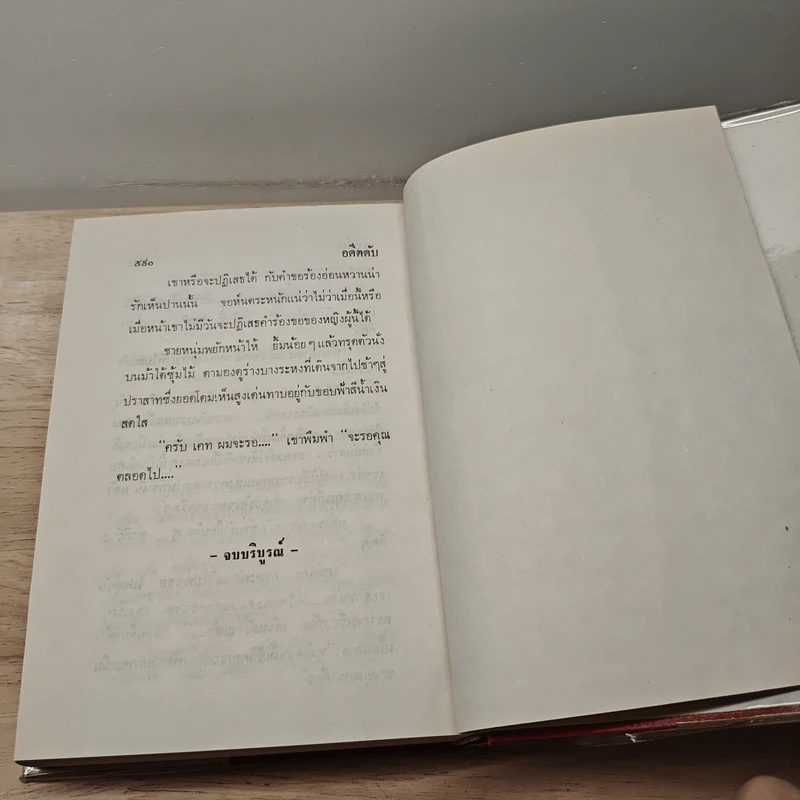 ๕๙๐ อดีตดับ
เขาหรือจะปฏิเสธได้ กับคำขอร้องอ่อนหวานน่า
รักเห็นปานนั้น จอห์นตระหนักแน่ว่าไม่ว่าเมื่อนี้หรือ
เมื่อหน้าเขาไม่มีวันจะปฏิเสธคำร้องขอของหญิงผู้นี้ได้
ชายหนุ่มพยักหน้าให้ ยิ้มน้อยๆ แล้วทรุดตัวนั่ง
บนม้าใต้ซุ้มไม้ ตามองดูร่างบางระหงที่เดินจากไปช้าๆสู่
ปราสาทซึ่งยอดโดมเห็นสูงเด่นทาบอยู่กับขอบฟ้าสีน้ำเงิน
สดใส
“ครับ เคท ผมจะรอ....” เขาพึมพำ “จะรอคุณ
ตลอดไป....”
– จบบริบูรณ์ –